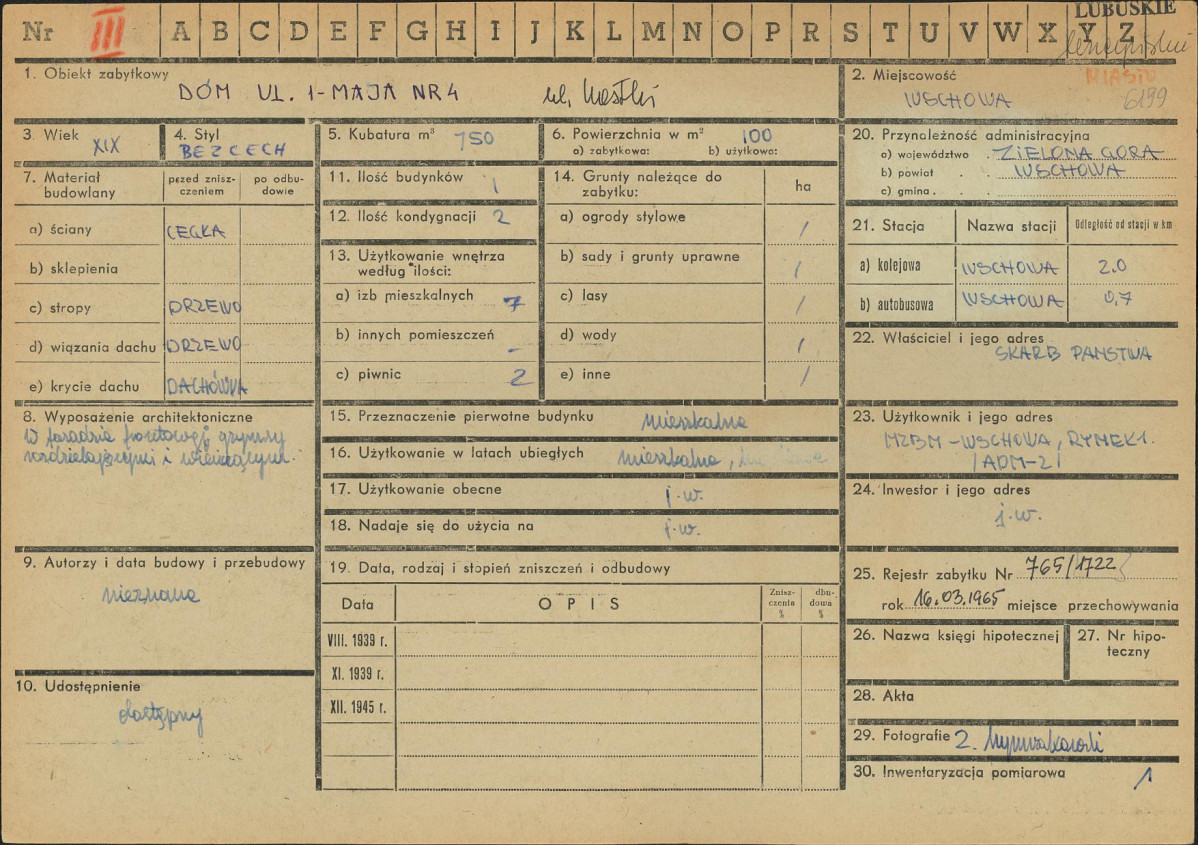 LUBUSKIE
Nr III A B C D E F G H I J K L M N O P R S T U V W X Y Z
1. Obiekt zabytkowy
DOM UL. 1-MAJA NR 4 ul.
2. Miejscowość
MIASTO
WSCHOWA
6199
3. Wiek
XIX
4. Styl
BEZ CECH
5. Kubatura m³ 750
6. Powierzchnia w m² 100
a) zabytkowa: b) użytkowa:
7. Materiał budowlany
przed znisz-
czeniem
po odbu-
dowie
a) ściany CEGŁA
b) sklepienia
c) stropy DRZEWO
d) wiązania dachu DRZEWO
e) krycie dachu DACHÓWKA
8. Wyposażenie architektoniczne
W fasadzie frontowej gzymsy
rozdzielającymi i wieńczącym.
9. Autorzy i data budowy i przebudowy
nieznane
10. Udostępnienie
dostępny
11. Ilość budynków 1
12. Ilość kondygnacji 2
13. Użytkowanie wnętrza
według ilości:
a) izb mieszkalnych 7
b) innych pomieszczeń -
c) piwnic 2
14. Grunty należące do
zabytku:
ha
a) ogrody stylowe /
b) sady i grunty uprawne /
c) lasy /
d) wody /
e) inne /
15. Przeznaczenie pierwotne budynku mieszkalne
16. Użytkowanie w latach ubiegłych mieszkalne,
17. Użytkowanie obecne j.w.
18. Nadaje się do użycia na j.w.
19. Data, rodzaj i stopień zniszczeń i odbudowy
Data
OPIS
Znisz-
czenia
%
dbu-
dowa
%
VIII. 1939 r.
XI. 1939 r.
XII. 1945 r.
20. Przynależność administracyjna
a) województwo ZIELONA GÓRA
b) powiat WSCHOWA
c) gmina
21. Stacja Nazwa stacji Odległość od stacji w km
a) kolejowa WSCHOWA 2.0
b) autobusowa WSCHOWA 0,7
22. Właściciel i jego adres
SKARB PAŃSTWA
23. Użytkownik i jego adres
MZBM - WSCHOWA, RYNEK 1.
/ADM-2/
24. Inwestor i jego adres
j.w.
25. Rejestr zabytku Nr 765/1722
rok 16.03.1965 miejsce przechowywania
26. Nazwa księgi hipotecznej
27. Nr hipo-
teczny
28. Akta
29. Fotografie 2.
30. Inwentaryzacja pomiarowa 1